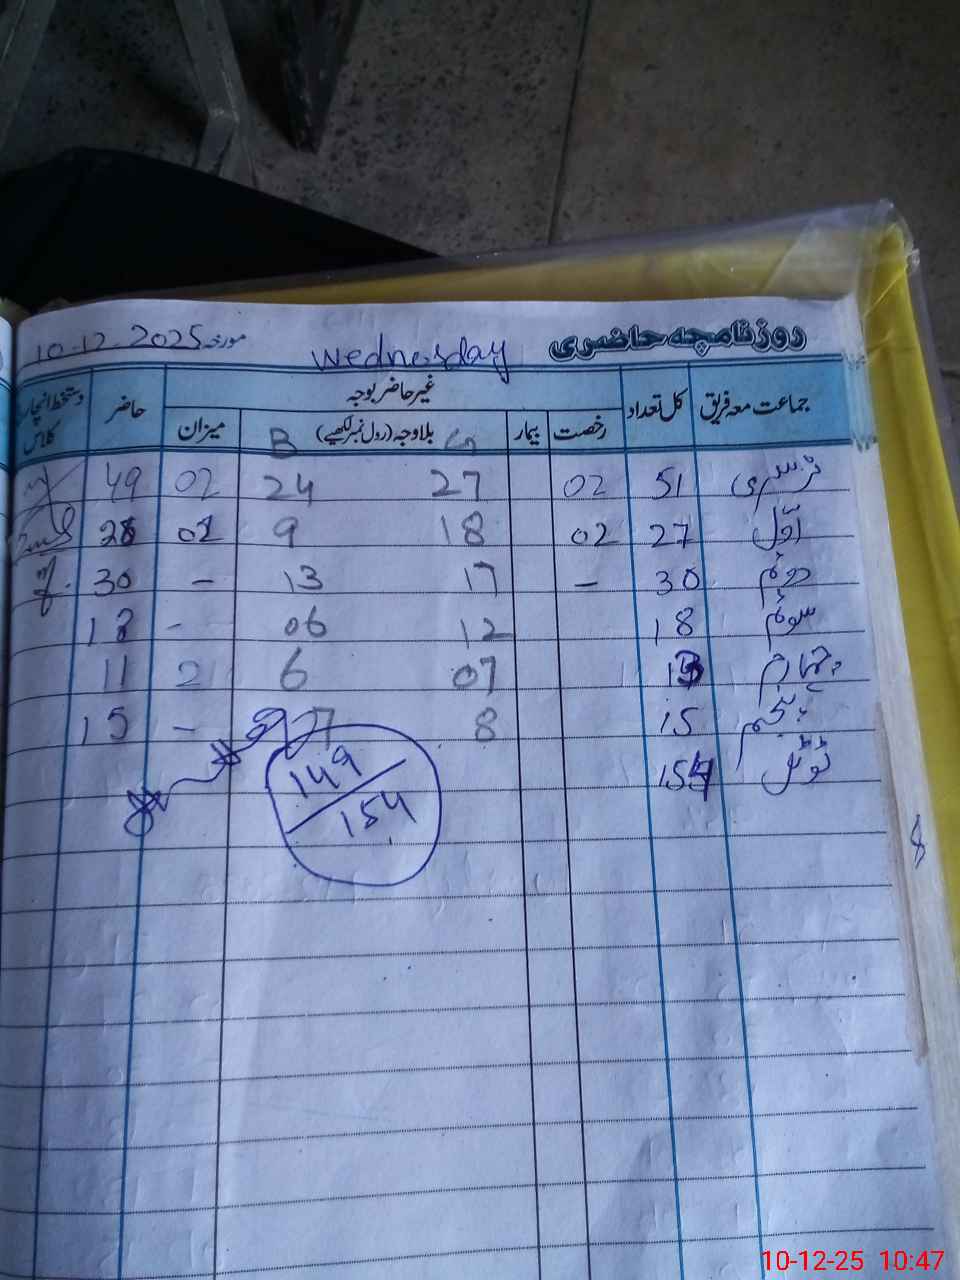 روزنامچہ حاضری Wednesday مورخہ 10-12-2025
جماعت معہ فریق کل تعداد غیر حاضر بوجہ حاضر دستخط انچارج کلاس
رخصت بیمار بلاوجہ (رول نمبر لکھیے) میزان
G B
نرسری 51 02 27 24 02 49
اوّل 27 02 18 9
دوئم 30 – 17 13 – 30
سوئم 18 12 06 - 18
چہارم 13 07 6 2 11
پنجم 15 8 7 – 15
ٹوٹل 154
149
154
10-12-25 10:47